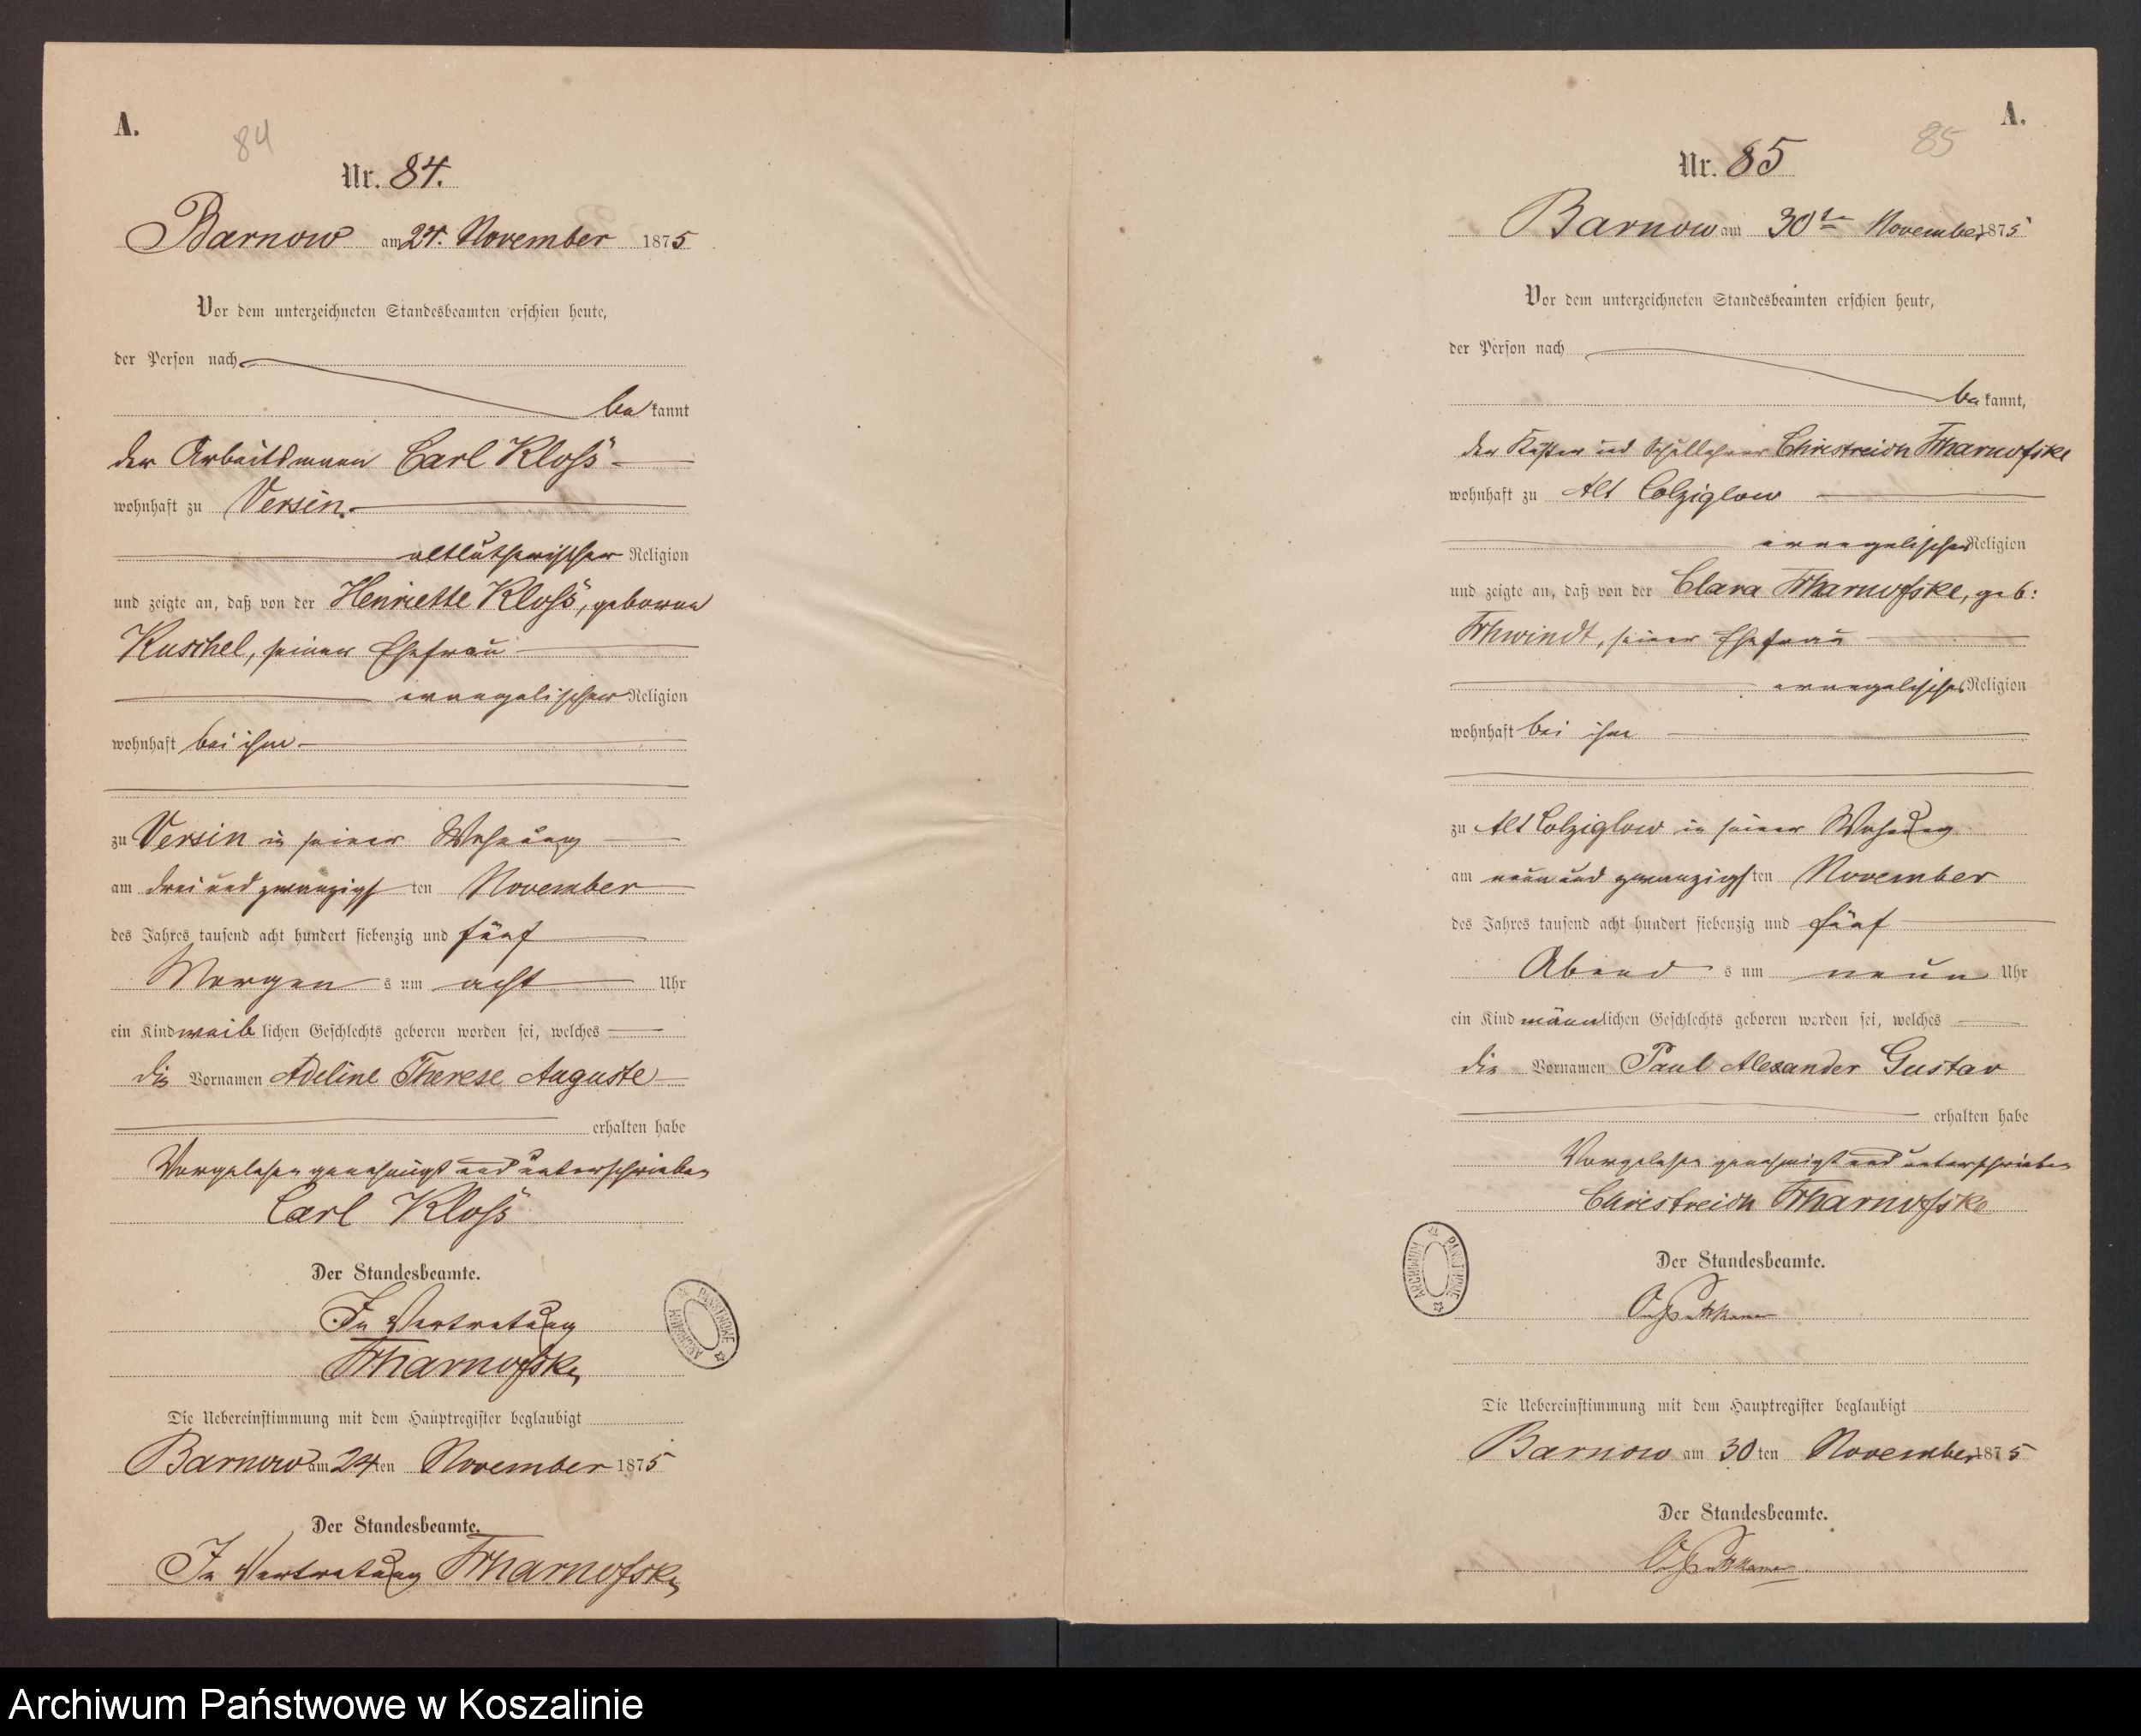 A.
84
Nr. 84.
Barnow am 24. November 1875
Vor dem unterzeichneten Standesbeamten erschien heute,
der Person nach
be kannt
der Arbeitsmann Carl Kloss
wohnhaft zu Versin.
altlutherischer Religion
und zeigte an, daß von der Henriette Kloss, geborene
Kuschel, seiner Ehefrau
evangelischer Religion
wohnhaft bei ihm
zu Versin in seiner Wohnung
am drei und zwanzigs ten November
des Jahres tausend acht hundert siebenzig und fünf
Morgen s um acht Uhr
ein Kind weib lichen Geschlechts geboren worden sei, welches
die Vornamen Adeline Therese Auguste
erhalten habe
Vorgelesen genehmigt und unterschrieben
Carl Kloss
Der Standesbeamte.
In Vertretung
Die Uebereinstimmung mit dem Hauptregister beglaubigt
Barnow am 24ten November 1875
Der Standesbeamte.
In Vertretung
ARCHIWUM PAŃSTWOWE
A.
85
Nr. 85
Barnow am 30ten November 1875
Vor dem unterzeichneten Standesbeamten erschien heute,
der Person nach
be kannt,
der Küster und Schullehrer
wohnhaft zu Alt Colziglow
evangelischer Religion
und zeigte an, daß von der Clara geb:
seiner Ehefrau
evangelischer Religion
wohnhaft bei ihm
zu Alt Colziglow in seiner Wohnung
am neun und zwanzigs ten November
des Jahres tausend acht hundert siebenzig und fünf
Abend s um neun Uhr
ein Kind männ lichen Geschlechts geboren worden sei, welches
die Vornamen Paul Alexander Gustav
erhalten habe
Vorgelesen genehmigt und unterschrieben
Der Standesbeamte.
ARCHIWUM PAŃSTWOWE
Die Uebereinstimmung mit dem Hauptregister beglaubigt
Barnow am 30 ten November 1875
Der Standesbeamte.
Archiwum Państwowe w Koszalinie